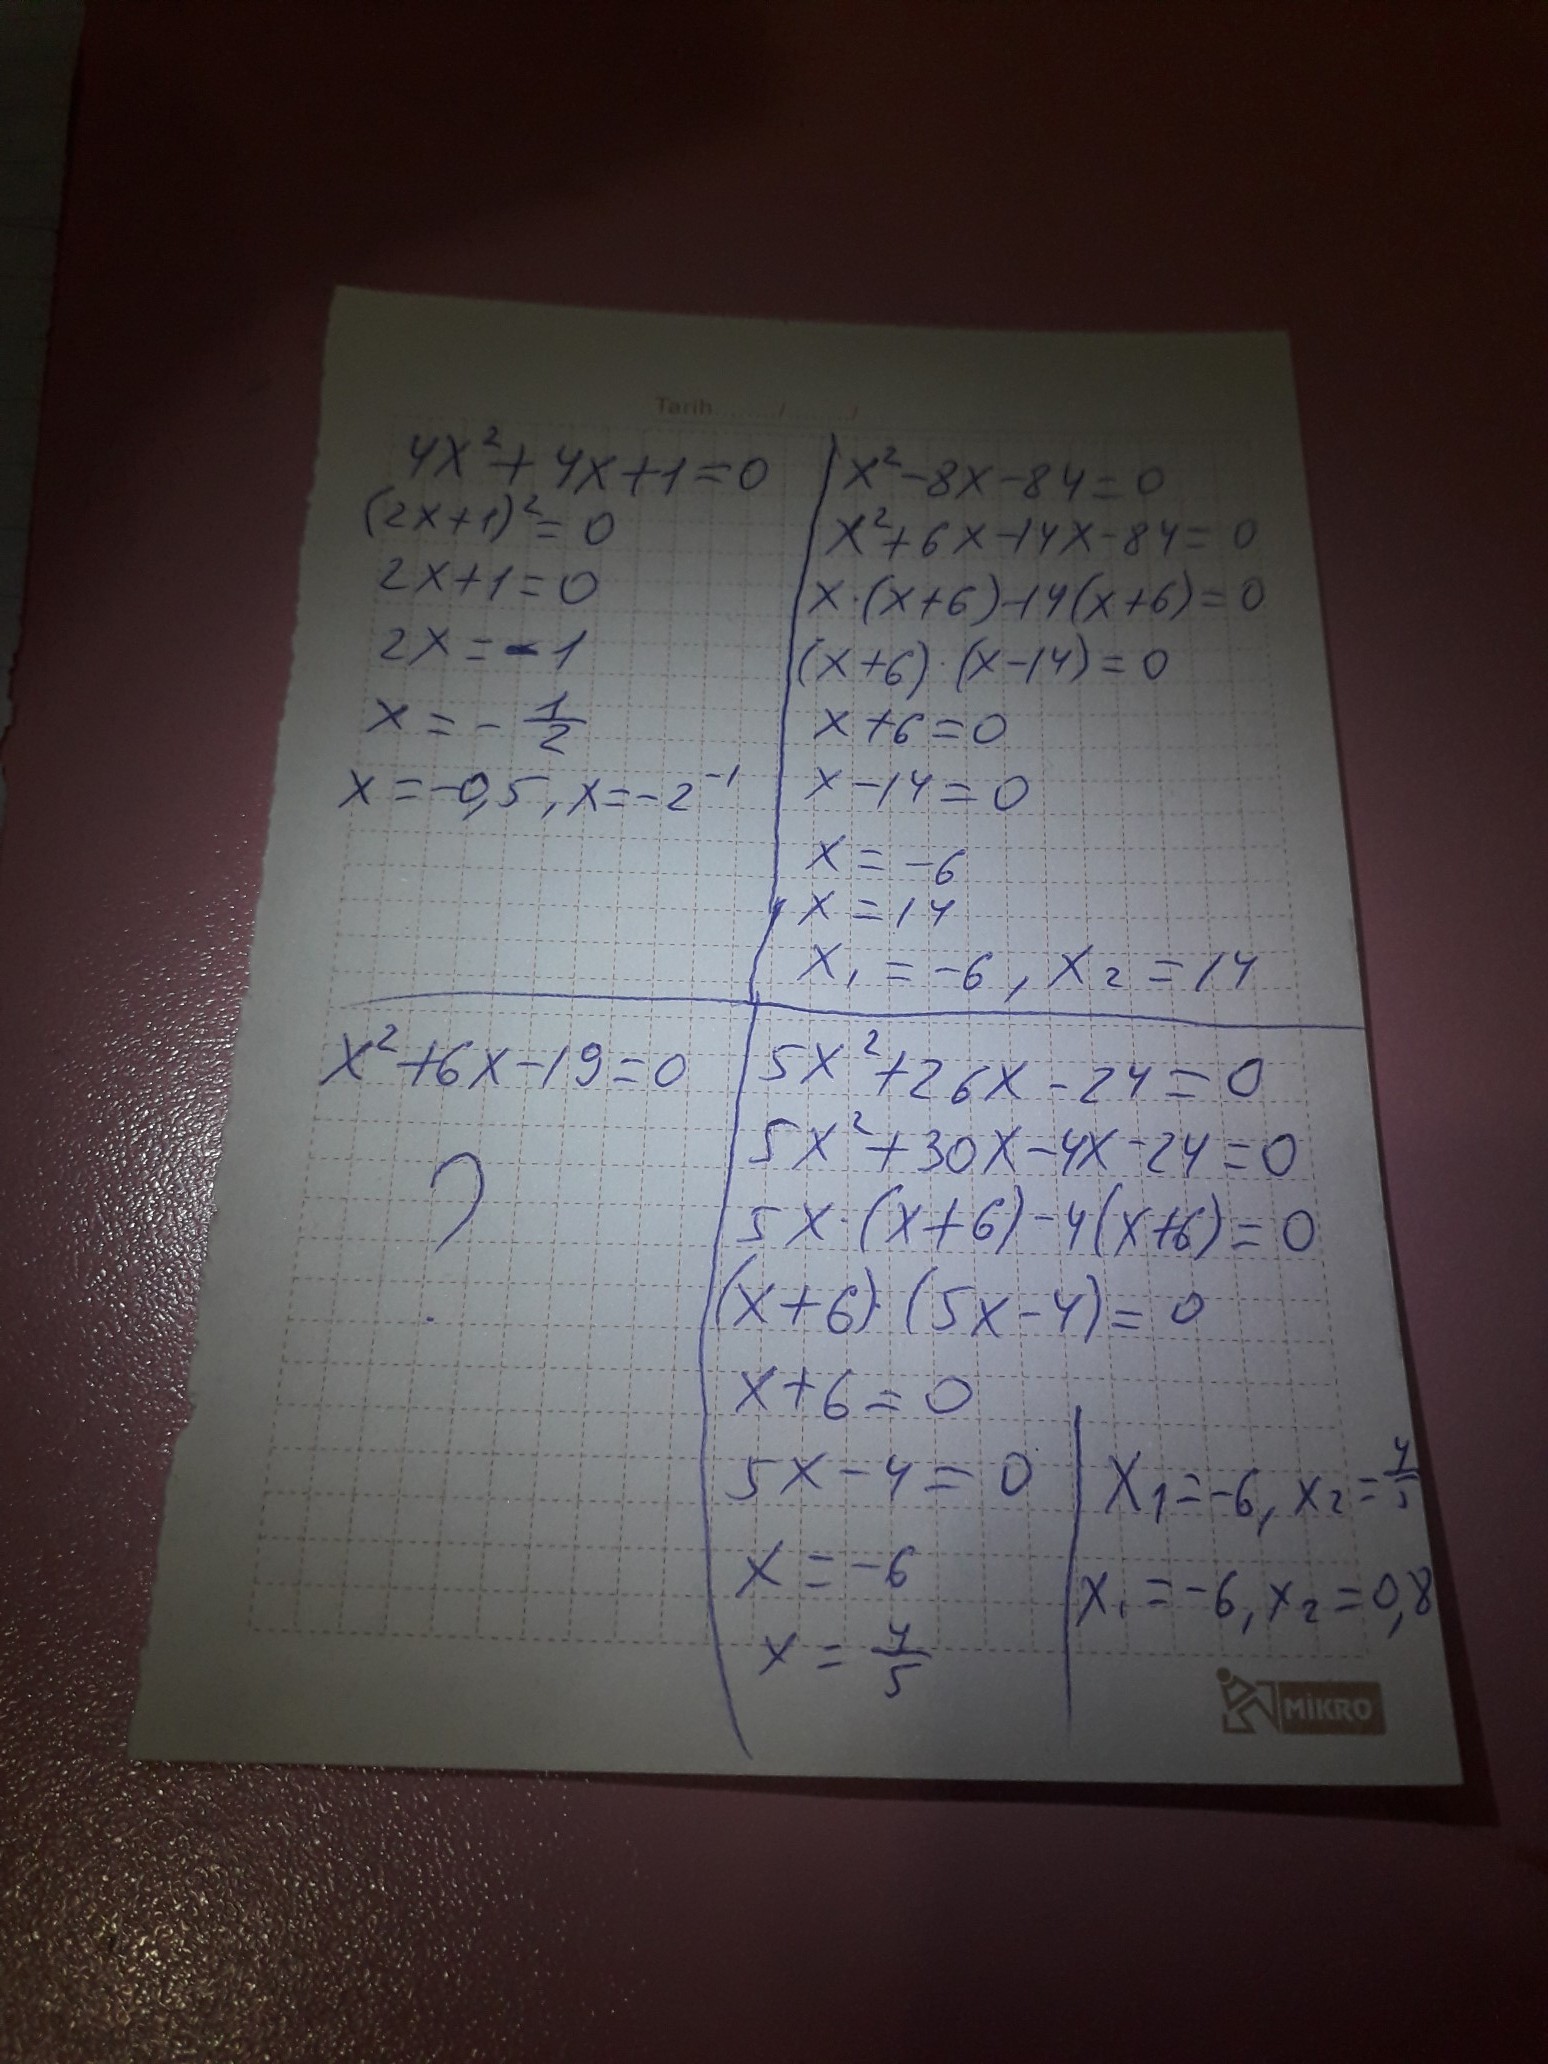 Tarih ......./......../
4x²+4x+1=0
(2x+1)²=0
2x+1=0
2x=-1
x=-1/2
x=-0,5, x=-2⁻¹
x²-8x-84=0
x²+6x-14x-84=0
x·(x+6)-14(x+6)=0
(x+6)·(x-14)=0
x+6=0
x-14=0
x=-6
x=14
x₁=-6, x₂=14
x²+6x-19=0
?
5x²+26x-24=0
5x²+30x-4x-24=0
5x·(x+6)-4(x+6)=0
(x+6)·(5x-4)=0
x+6=0
5x-4=0
x=-6
x=4/5
x₁=-6, x₂=4/5
x₁=-6, x₂=0,8
MİKRO